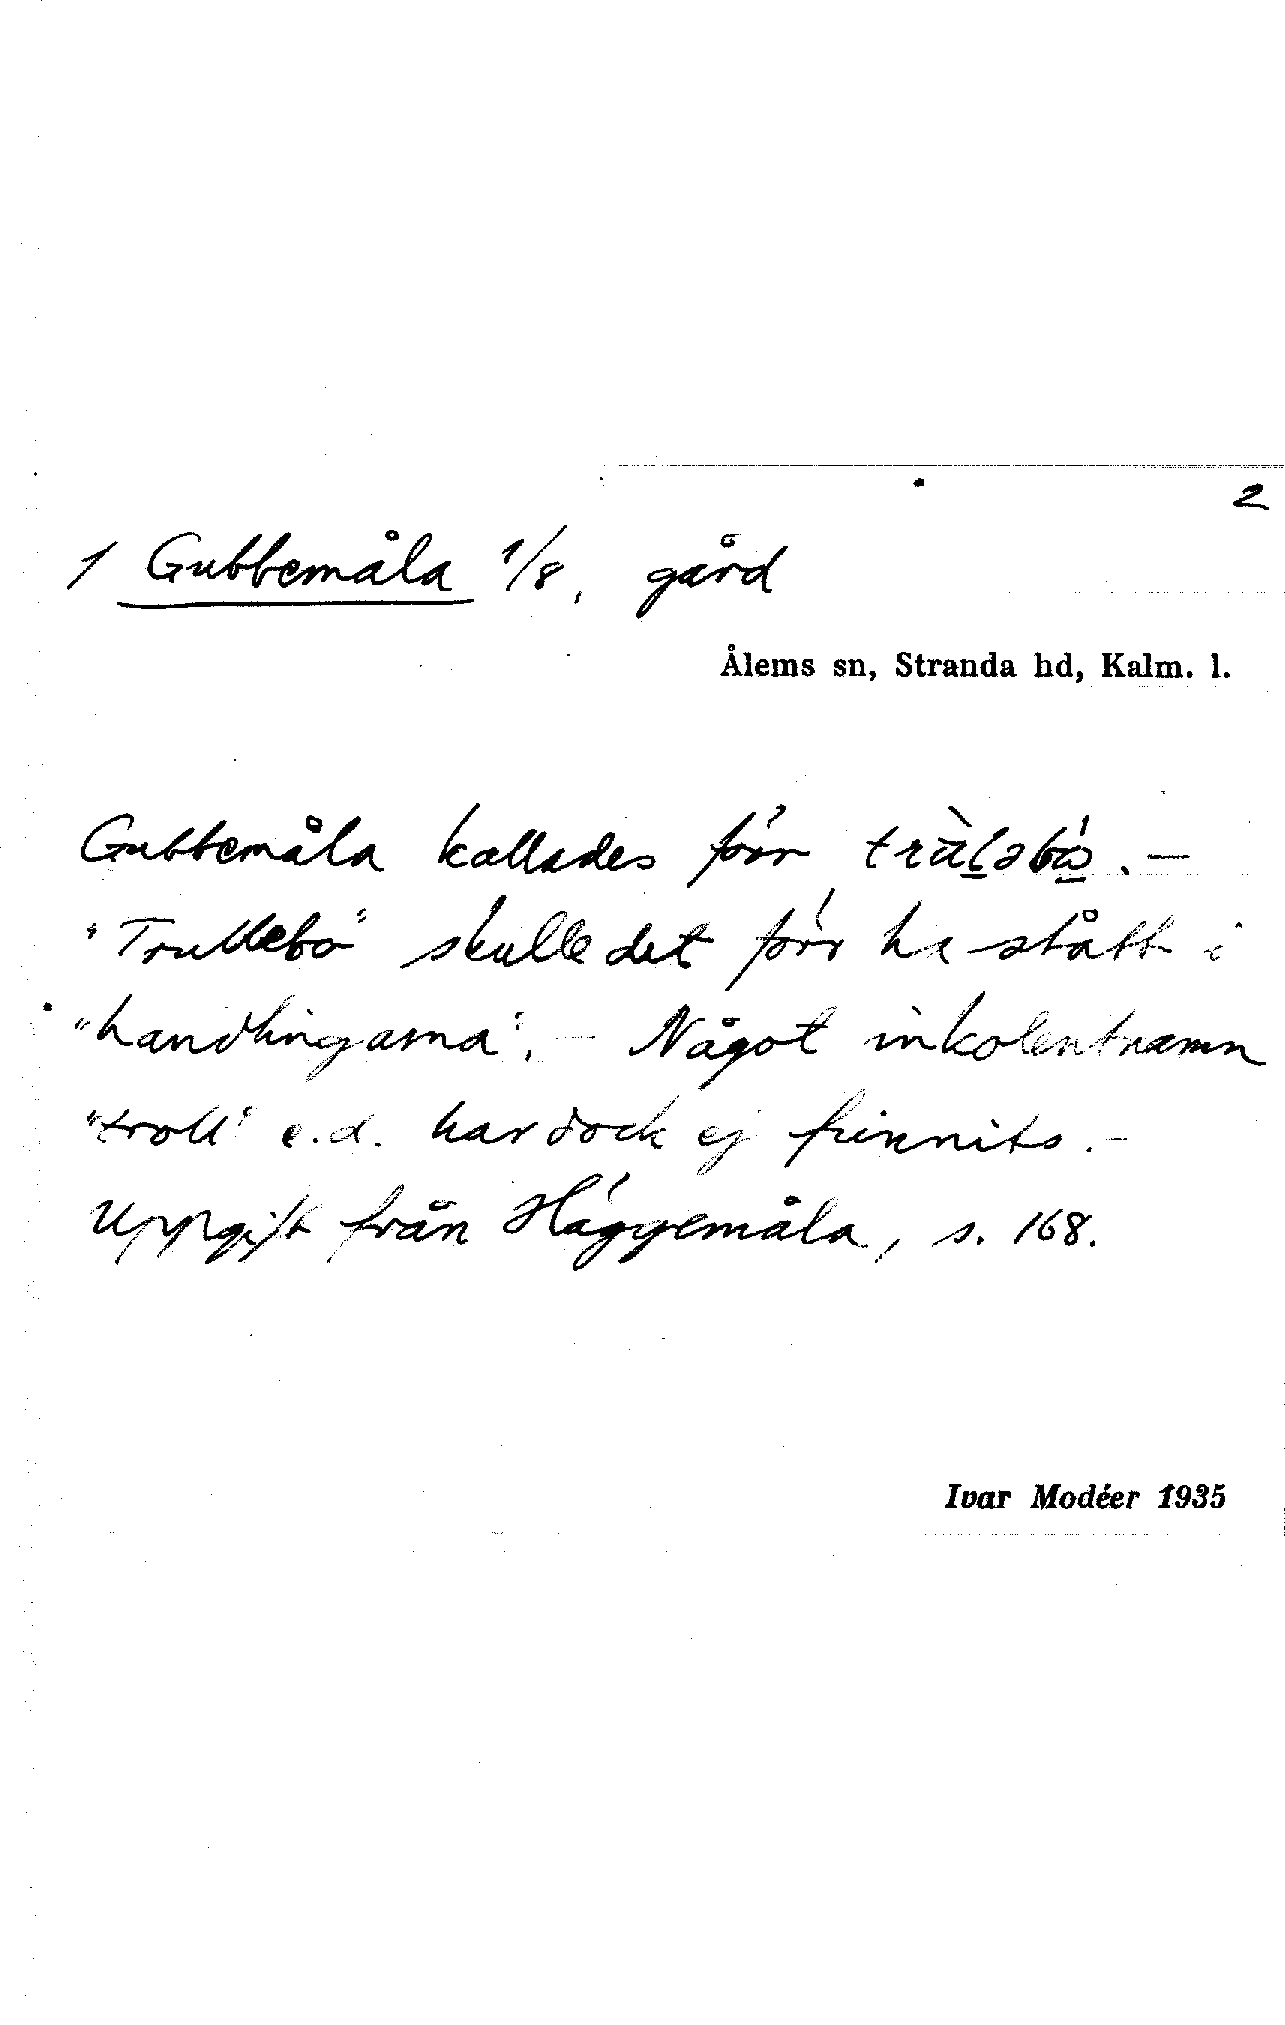 2
1 Gubbemåla 1/8, gård
Ålems sn, Stranda hd, Kalm. l.
Gubbemåla kallades förr .—
"Trullebo" skulle det förr ha stått i
"handlingarna". — Något inkolentnamn
"troll" e.d. har dock ej funnits. —
Uppgift från Häggemåla, s. 168.
Ivar Modéer 1935